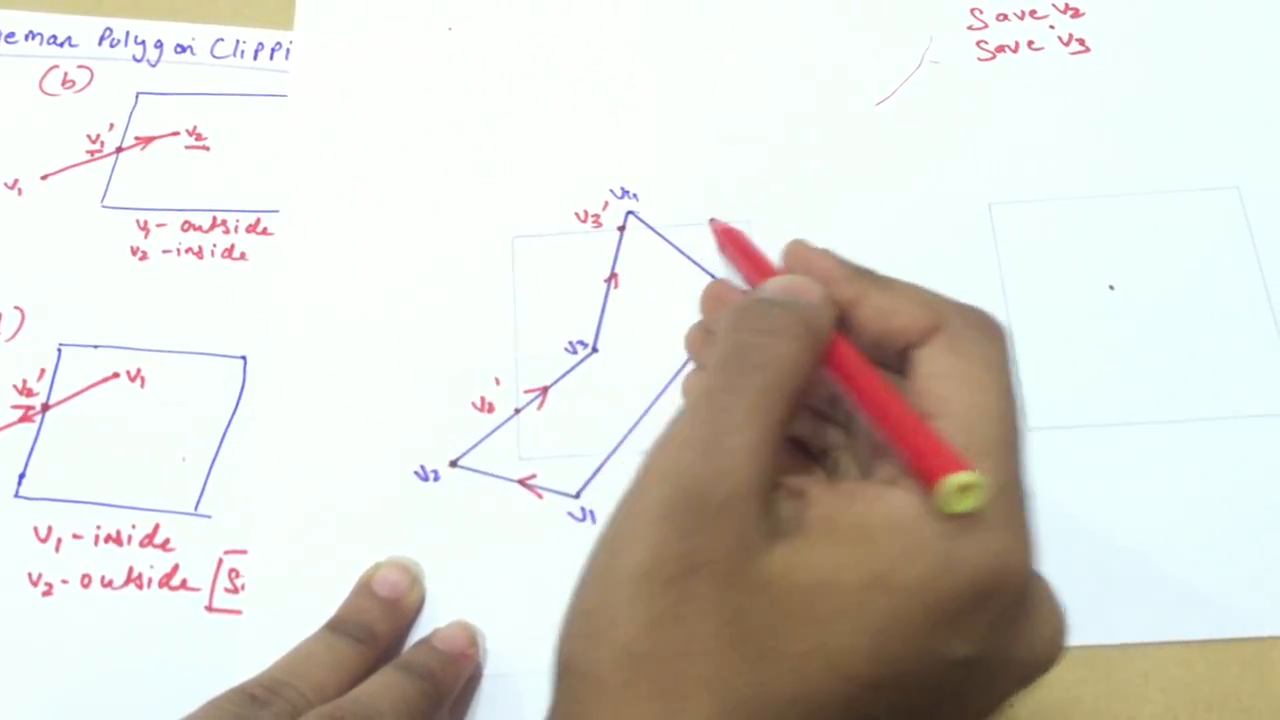 eman Polygon Clippi
(b)
v1'
v2
v1
v1 - outside
v2 - inside
)
v2'
v1
v1 - inside
v2 - outside [S
Save v2'
Save v3
v4
v3'
v3
v2'
v2
v1